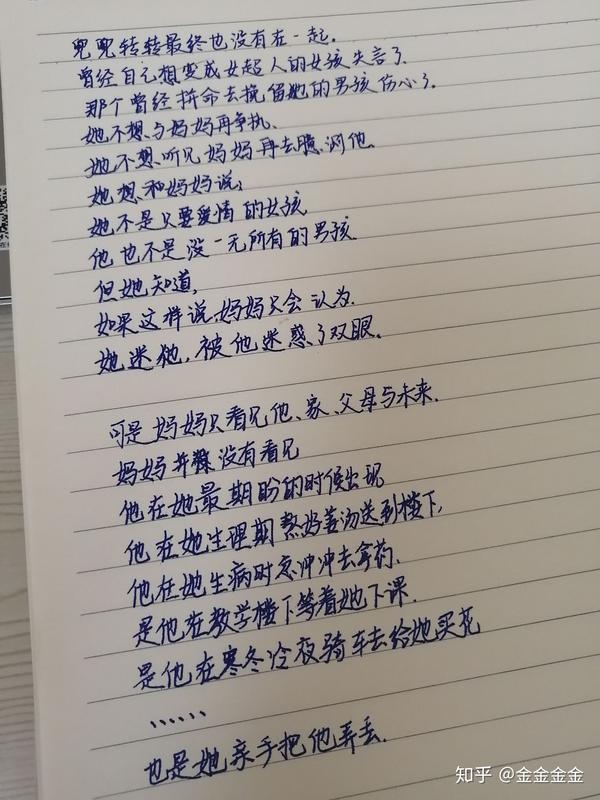 兜兜转转最终也没有在一起.
曾经自己想变成女超人的女孩失言了.
那个曾经拼命去挽留她的男孩伤心了.
她不想与妈妈再争执.
她不想听见妈妈再去臆测他.
她想和妈妈说,
她不是只要爱情的女孩
他也不是没一无所有的男孩.
但她知道,
如果这样说,妈妈只会认为.
她迷他,被他迷惑了双眼.
可是妈妈只看见他、家、父母与未来.
妈妈并没有看见
他在她最期盼的时候出现
他在她生理期熬好姜汤送到楼下,
他在她生病时急冲冲去拿药.
是他在教学楼下等着她下课.
是他在寒冬冷夜骑车去给她买花
......
也是她亲手把他弄丢.
知乎 @金金金金